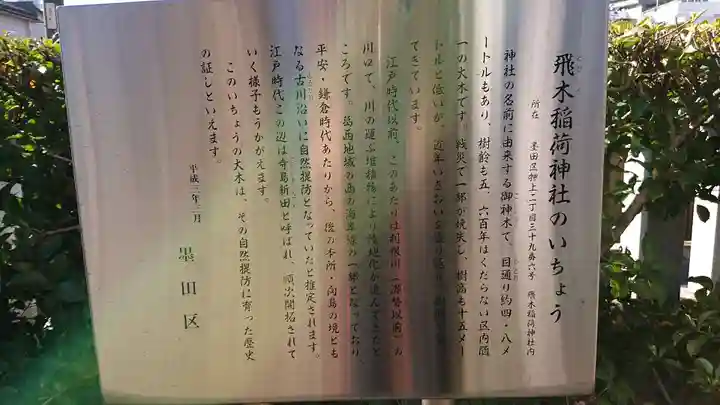 飛木稲荷神社のいちょう
所在 墨田区押上二丁目三十九番六号 飛木稲荷神社内
神社の名前に由来する御神木で、目通り約四・八メ
ートルもあり、樹齢も五、六百年はくだらない区内随
一の大木です。戦災で一部が焼失し、樹高も十五メー
トルと低いが、近年いきおいを
てきています。
江戸時代以前、このあたりは利根川（
川口で、川の運ぶ堆積物により陸地化が進んできたと
ころです。葛西地域の西の海岸線の一部となっており、
平安・鎌倉時代あたりから、後の本所・向島の境とも
なる古川沿いに自然堤防となっていたと推定されます。
江戸時代この辺は寺島新田と呼ばれ、順次開拓されて
いく様子もうかがえます。
このいちょうの大木は、その自然堤防に育った歴史
の証しといえます。
平成三年三月
墨田区